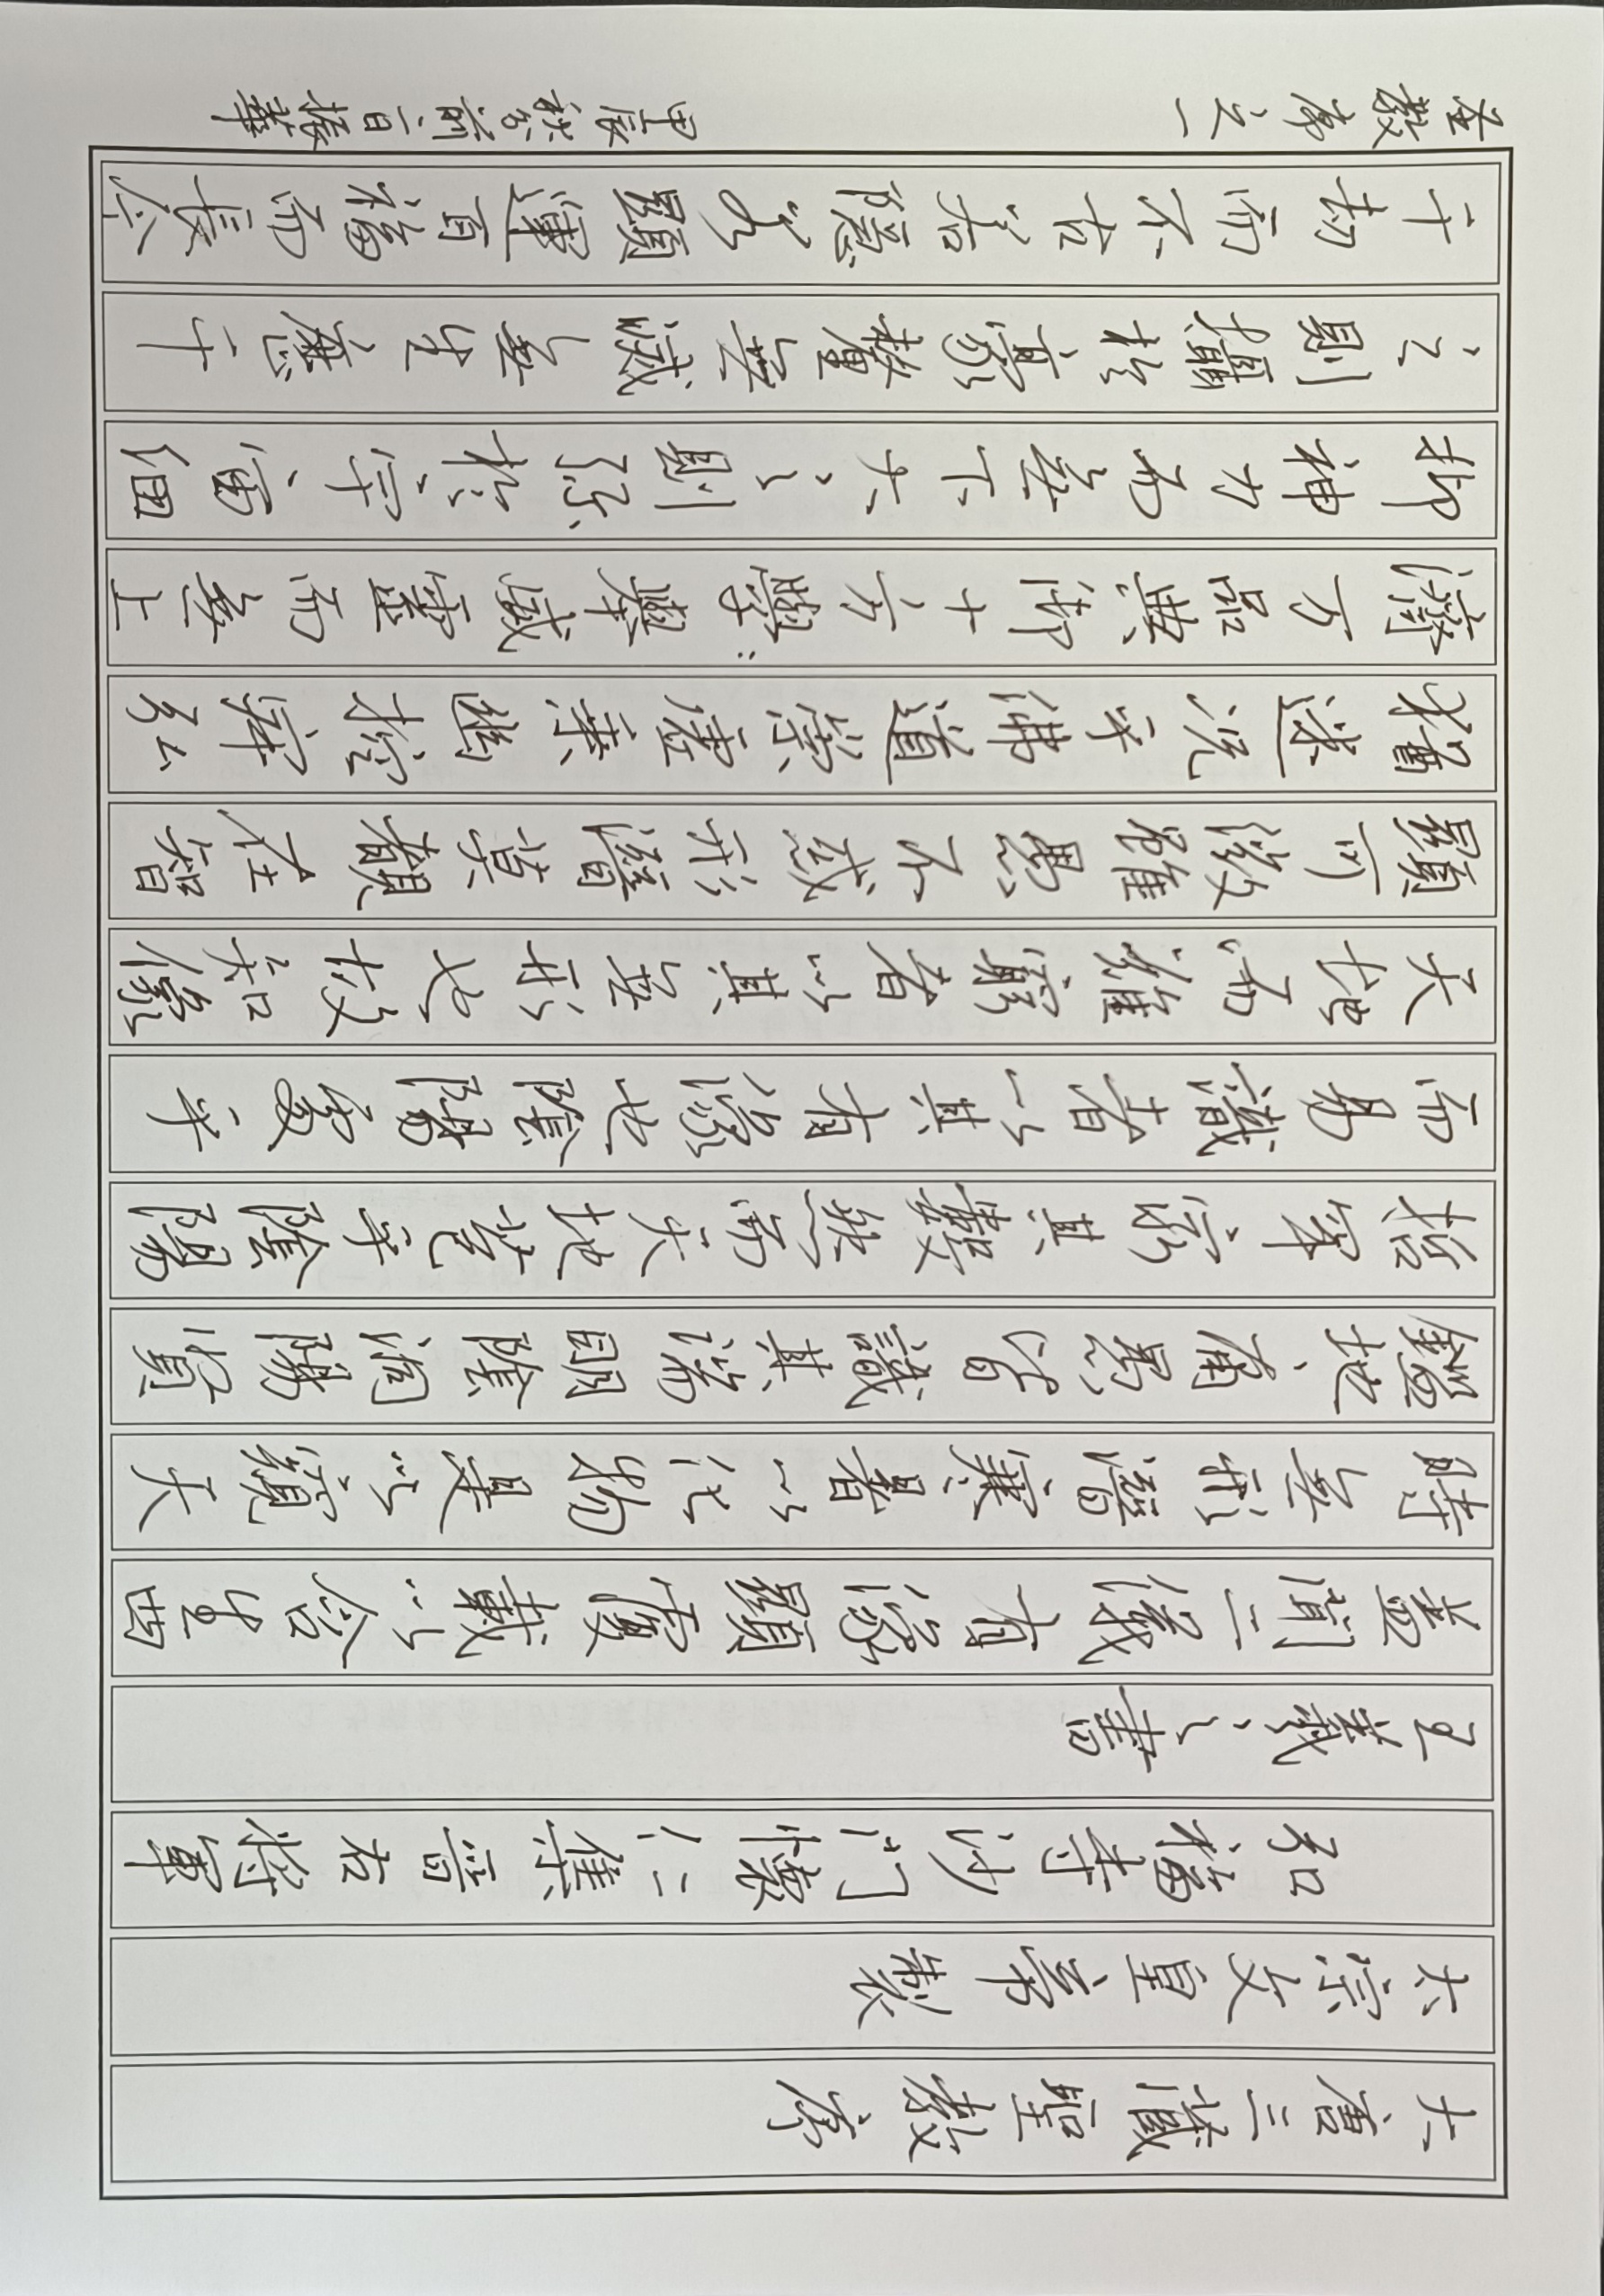 大唐三藏聖教序
太宗文皇帝製
弘福寺沙門懷仁集晉右將軍
王羲之書
蓋聞二儀有像顯覆載以含生四
時無形潛寒暑以化物是以窺天
鑑地、庸愚皆識其端明陰洞陽賢
哲罕窮其數然而天地苞乎陰陽
而易識者以其有像也陰陽處乎
天地而難窮者以其無形也故知像
顯可徵雖愚不惑形潛莫覩在智
猶迷况乎佛道崇虛乘幽控寂弘
濟万品典御十方學:舉威靈而無上
抑神力而無下大之則弥於宇宙細
之則攝於豪釐無滅無生歷千
千劫而不古若隱若顯運百福而長今
圣教序之一
甲辰秋分前二日振華